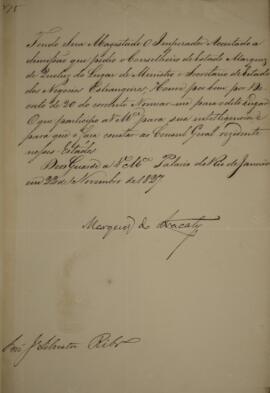 Tendo Sua Magestade O Imperador Acceitado a
demissão que pedio o Conselheiro de Estado Marquez
de Queluz do Lugar de Ministro e Secretario de Estado
dos Negocios Estrangeiros, Houve por bem por De-
creto de 20 do corrente Nomear-me para o dito Lugar
O que participo a V. M.ce para sua intelligencia e
para que o faça constar ao Consul Geral residente
nesses Estados.
Deos Guarde a V. M.ce Palacio do Rio de Janeiro
em 22 de Novembro de 1827
Marquez de Aracaty
Snr. J. Silvestre Rebº